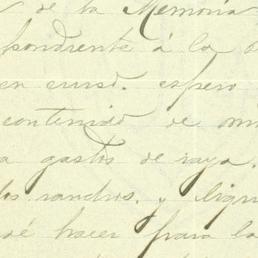 de la Memoria
pondiente á la
en curso. espero
contenido de mi
a gastos de raya.
los ranchos. y
hacer para la